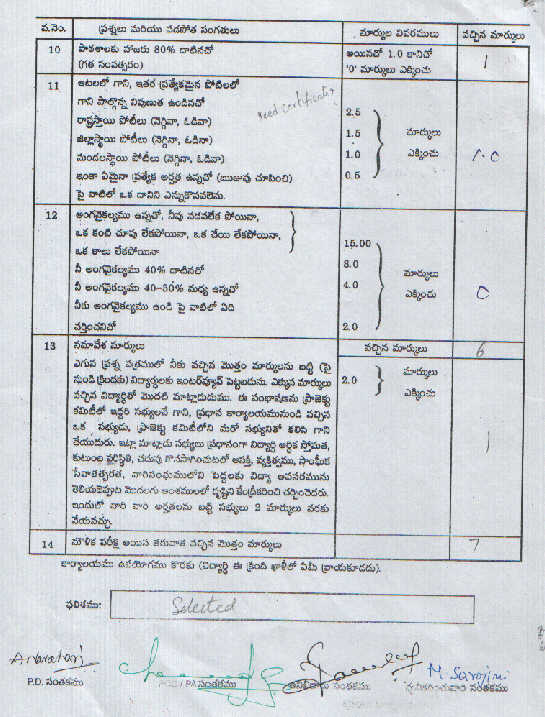 వ.నెం. ప్రశ్నలు మరియు చేడపాత సంగతులు మార్కుల వివరములు వచ్చిన మార్కులు
10 పాఠశాలకు హాజరు 80% దాటినచో అయినచో 1.0 కానిచో 1
(గత సంవత్సరం) '0' మార్కులు ఎక్కించు
11 ఆటలలో గాని, ఇతర ప్రత్యేకమైన పోటీలలో
గాని పాల్గొన్న నిపుణత ఉండినచో need certificates
రాష్ట్రస్థాయి పోటీలు (నెగ్గినా, ఓడినా) 2.5
జిల్లాస్థాయి పోటీలు (నెగ్గినా, ఓడినా) 1.5 మార్కులు
మండలస్థాయి పోటీలు (నెగ్గినా, ఓడినా) 1.0 ఎక్కించు
ఇంకా ఏమైనా ప్రత్యేక అర్హత ఉన్నచో (ఋజువు చూపించి) 0.5
పై వాటిలో ఒక దానిని ఎన్నుకొనవలెను.
12 అంగవైకల్యము ఉన్నచో, నీవు నడవలేక పోయినా,
ఒక కంటి చూపు లేకపోయినా, ఒక చేయి లేకపోయినా,
ఒక కాలు లేకపోయినా 15.00
నీ అంగవైకల్యము 40% దాటినచో 8.0 మార్కులు
నీ అంగవైకల్యము 40-30% మధ్య ఉన్నచో 4.0 ఎక్కించు 0
నీకు అంగవైకల్యము ఉండి పై వాటిలో ఏది
వర్తించనిచో 2.0
13 సమావేశ మార్కులు వచ్చిన మార్కులు 6
ఎగువ ప్రశ్న పత్రములో నీకు వచ్చిన మొత్తం మార్కులను బట్టి (పై
నుండి క్రిందకు) విద్యార్థులకు ఇంటర్వ్యూకి పెట్టబడును. ఎక్కువ మార్కులు 2.0 మార్కులు
వచ్చిన విద్యార్థితో మొదట మాట్లాడుదుము. ఈ సంభాషణను ప్రాజెక్టు ఎక్కించు
కమిటీలో ఇద్దరి సభ్యులచే గాని, ప్రధాన కార్యాలయమునుండి వచ్చిన
ఒక సభ్యుడు, ప్రాజెక్టు కమిటీలోని మరో సభ్యునితో కలిసి గాని
చేయుదురు. ఇట్లా మాట్లాడు సభ్యులు ప్రధానంగా విద్యార్థి ఆర్థిక స్తోమత, 1
కుటుంబ పరిస్థితి, చదువు కొనసాగించుటలో ఆసక్తి, వ్యక్తిత్వము, సాంఘీక
సేవాతత్పరత, పెద్దలకు విద్యా అవసరమును
తెలియచెప్పుట మొదలగు అంశములలో దృష్టిని కేంద్రీకరించి చర్చించెదరు.
ఇందులో వారి వారి అర్హతలను బట్టి సభ్యులు 2 మార్కులు వరకు
వేయవచ్చు.
14 మౌఖిక పరీక్ష అయిన తరువాత వచ్చిన మొత్తం మార్కులు 7
కార్యాలయము ఉపయోగము కొరకు (విద్యార్థి ఈ క్రింది ఖాళీలో ఏమీ వ్రాయకూడదు).
ఫలితము: Selected
M Sarojini
P.D. సంతకము సంతకము సంతకము సంతకము